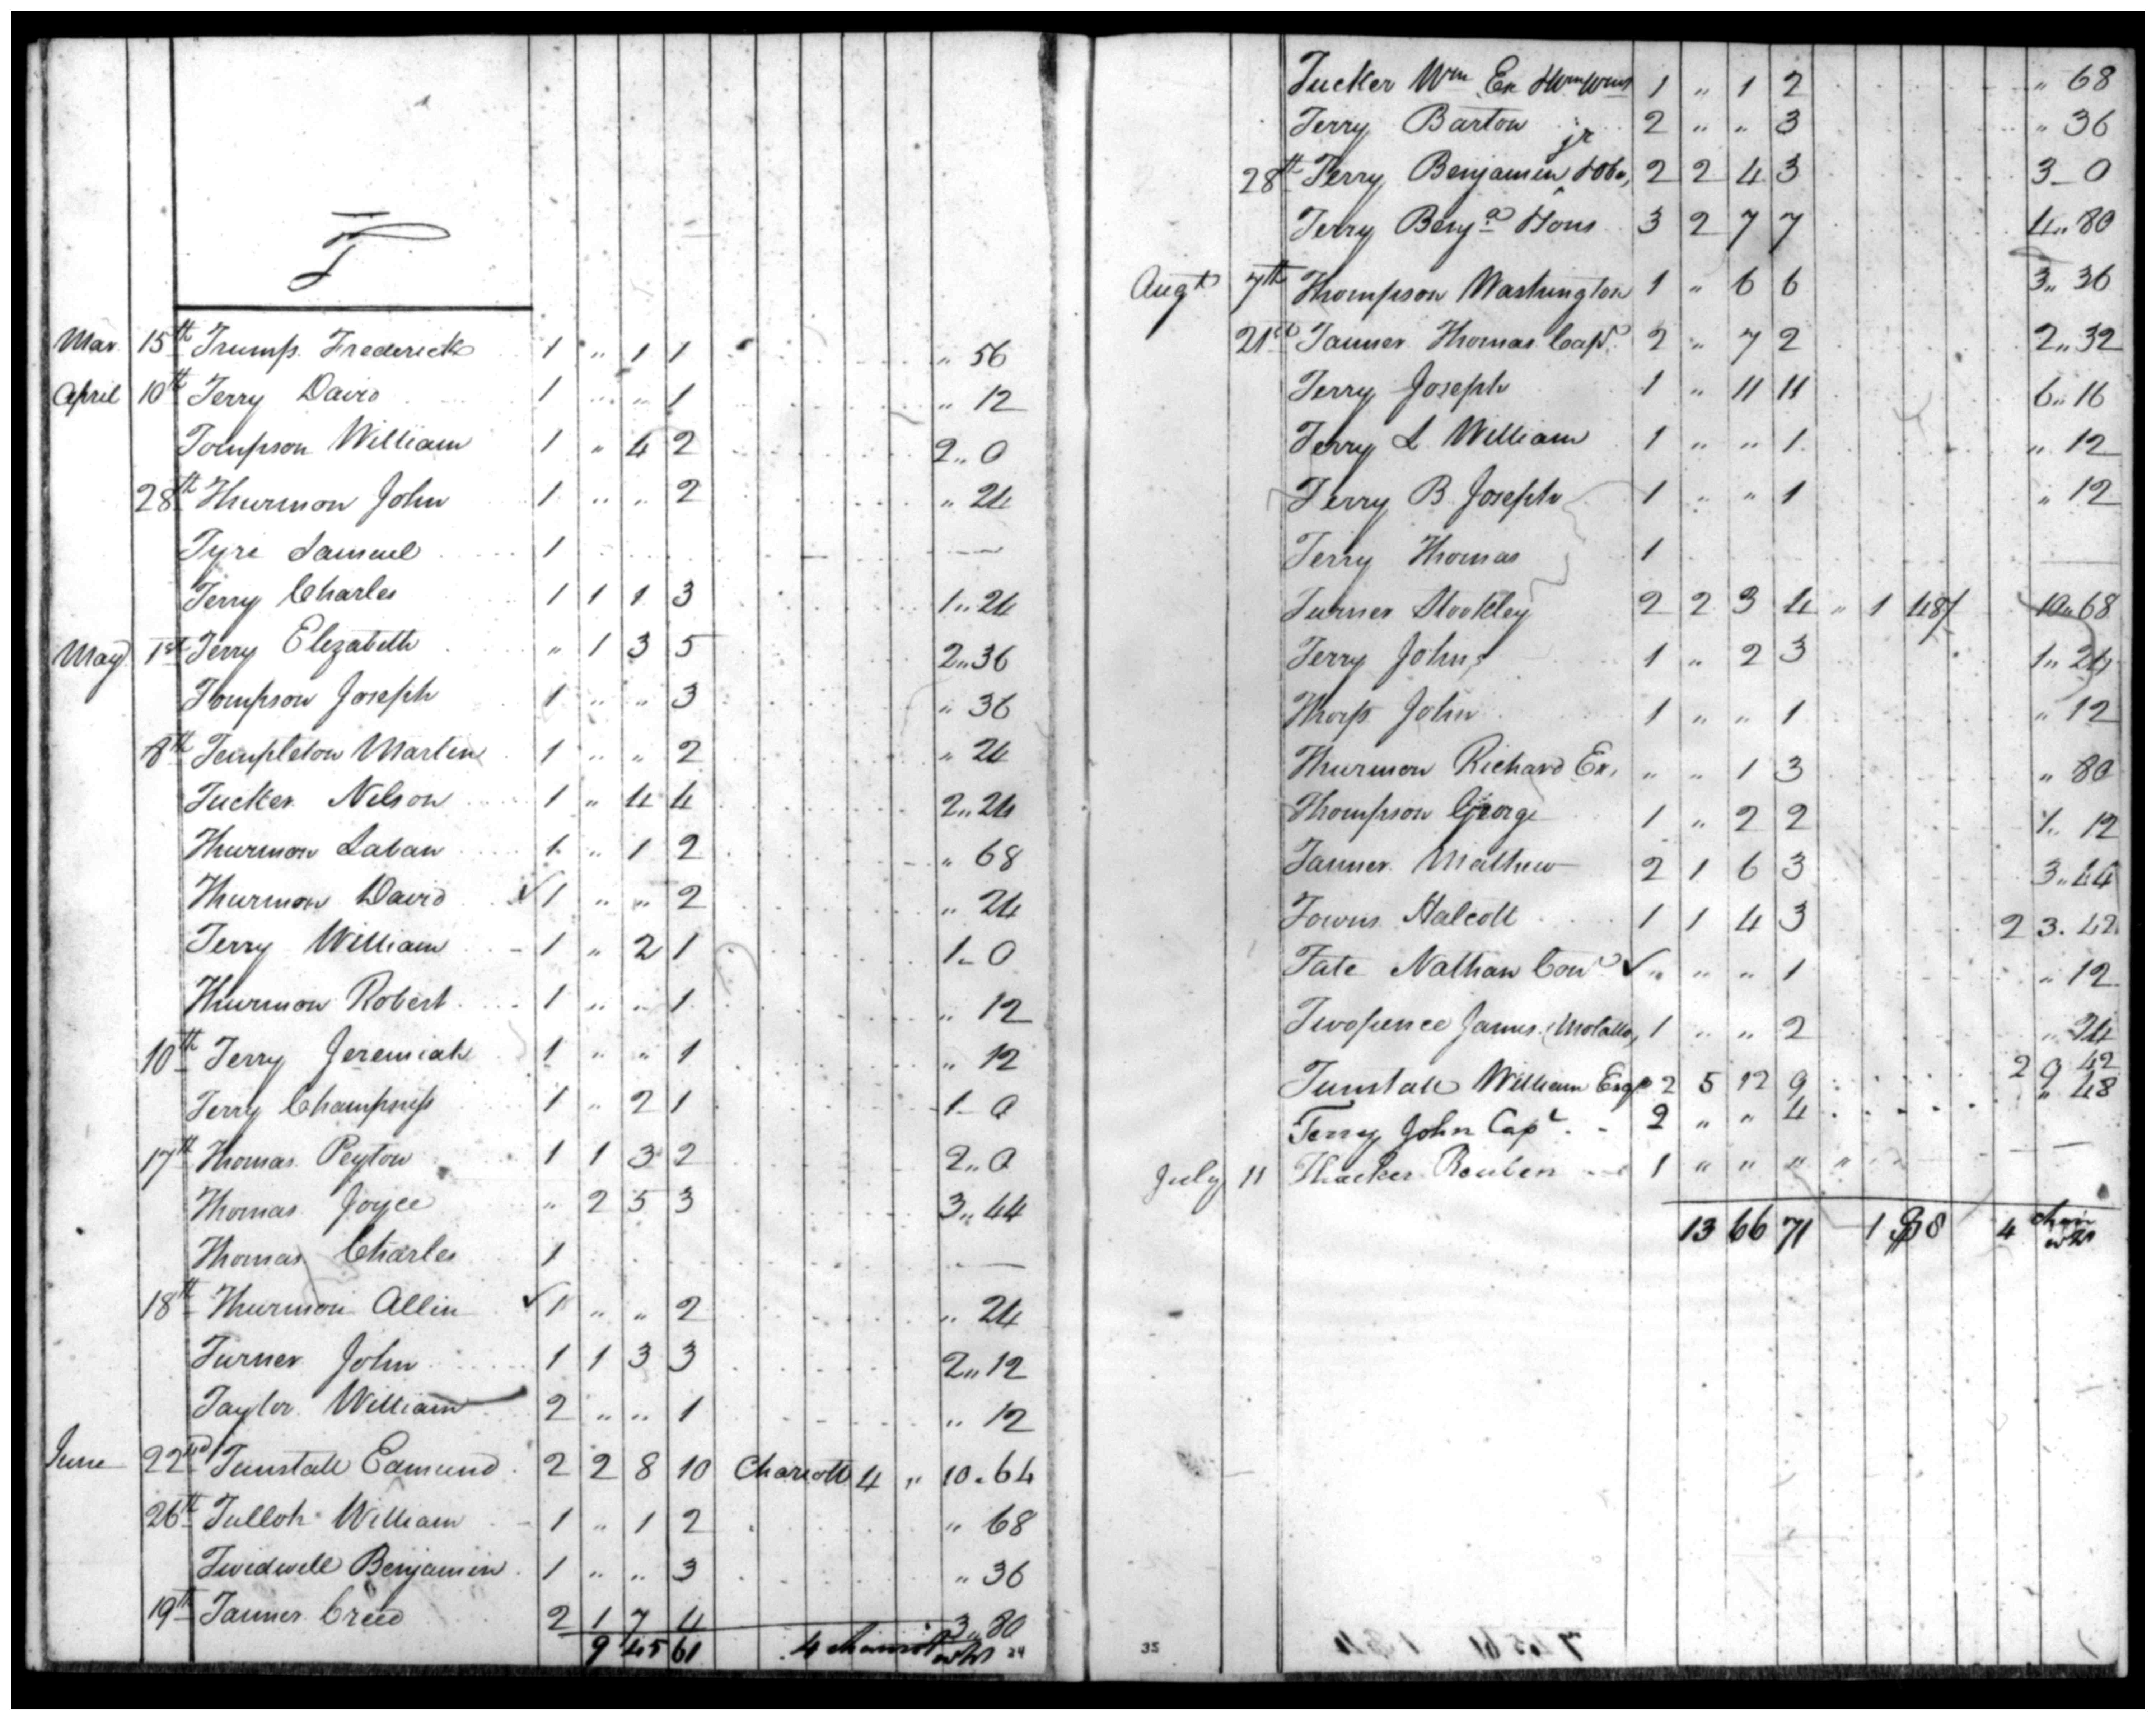 T
Mar. 15th Trump Frederick 1 " 1 1 " 56
April 10th Terry David 1 " " 1 " 12
Tompson William 1 " 4 2 2 " 0
28th Thurmon John 1 " " 2 " 24
Tyre Samuel 1 —
Terry Charles 1 1 1 3 1 " 24
May 1st Terry Elezabeth " 1 3 5 2 " 36
Tompson Joseph 1 " " 3 " 36
8th Templeton Martin 1 " " 2 " 24
Tucker Nelson 1 " 4 4 2 " 24
Thurmon Laban 1 " 1 2 " 68
Thurmon David ✓ 1 " " 2 " 24
Terry William 1 " 2 1 1 - 0
Thurmon Robert 1 " " 1 " 12
10th Terry Jeremiah 1 " " 1 " 12
Terry Champnip 1 " 2 1 1 - 0
17th Thomas Peyton 1 1 3 2 2 " 0
Thomas Joyce " 2 5 3 3 " 44
Thomas Charles 1 —
18th Thurmon Allin ✓ 1 " " 2 " 24
Turner John 1 1 3 3 2 " 12
Taylor William 2 " " 1 " 12
June 22nd Tunstall Edmund 2 2 8 10 Chariott 4 " 10 " 64
26th Tulloh William 1 " 1 2 " 68
Twedwell Benjamin 1 " " 3 " 36
19th Tanner Creed 2 1 7 4 3 " 80
9 45 61 4 chariott whs 24
Tucker Wm Ex 1 " 1 2 " 68
Terry Barton 2 " " 3 " 36
28th Terry Benjamin jr 2 2 4 3 3 - 0
Terry Benja Sons 3 2 7 7 4 " 80
Augt 7th Thompson Washington 1 " 6 6 3 " 36
21st Tanner Thomas Capt 2 " 7 2 2 " 32
Terry Joseph 1 " 11 11 6 " 16
Terry L William 1 " " 1 " 12
Terry B Joseph 1 " " 1 " 12
Terry Thomas 1 —
Turner Stookley 2 2 3 4 " 1 48/ 10 " 68
Terry John 1 " 2 3 1 " 24
Thorp John 1 " " 1 " 12
Thurmon Richard Ex. " " 1 3 " 80
Thompson George 1 " 2 2 1 " 12
Tanner Mathew 2 1 6 3 3 " 44
Towns Halcott 1 1 4 3 2 3 . 42
Tate Nathan Cond ✓ " " " 1 " 12
Twopence James (Molatto) 1 " " 2 " 24
Tunstall William Esqr 2 5 12 9 2 9 42
Terry John Capt. 2 " " 4 " 48
July 11 Thacker Reuben 1 " " " " —
13 66 71 1 4 chair whs
35